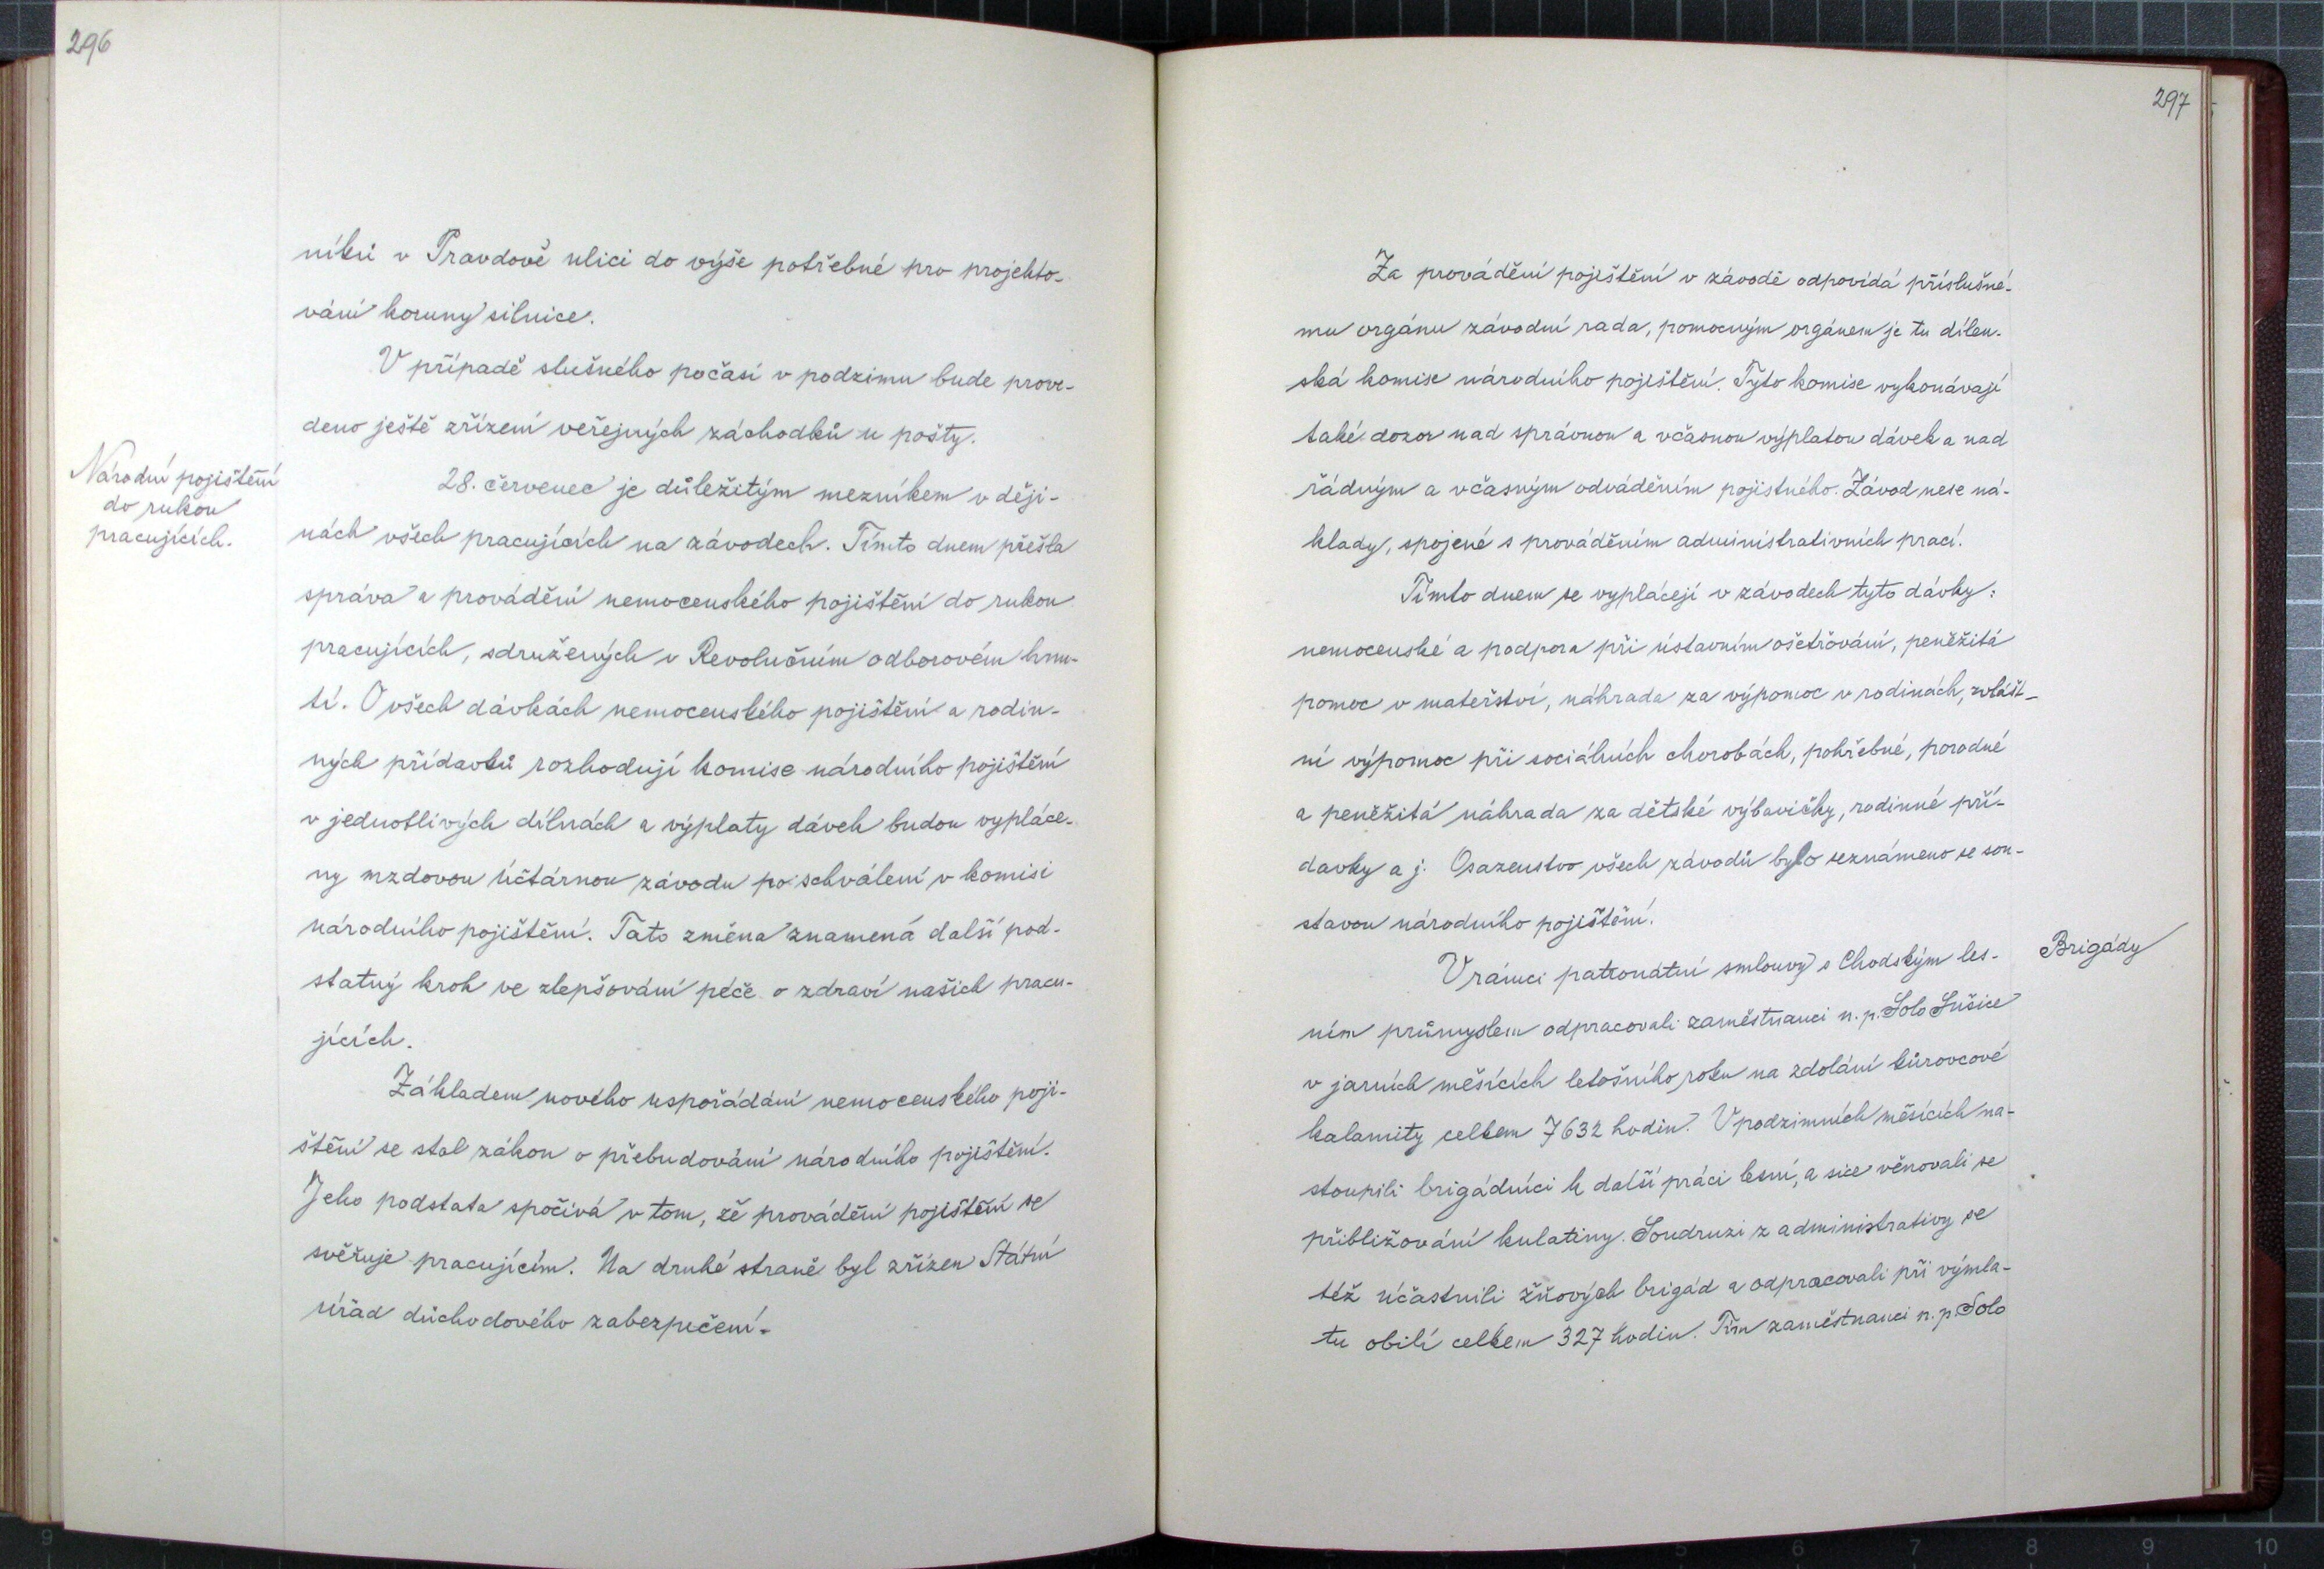 296
níků v Pravdově ulici do výše potřebné pro projekto-
vání koruny silnice.
V případě slušného počasí v podzimu bude prove-
deno ještě zřízení veřejných záchodků u pošty.
Národní pojištění
do rukou
pracujících.
28. červenec je důležitým mezníkem v ději-
nách všech pracujících na závodech. Tímto dnem přešla
správa a provádění nemocenského pojištění do rukou
pracujících, sdružených v Revolučním odborovém hnu-
tí. O všech dávkách nemocenského pojištění a rodin-
ných přídavků rozhodují komise národního pojištění
v jednotlivých dílnách a výplaty dávek budou vypláce-
ny mzdovou účtárnou závodu po schválení v komisi
národního pojištění. Tato změna znamená další pod-
statný krok ve zlepšování péče o zdraví našich pracu-
jících.
Základem nového uspořádání nemocenského poji-
štění se stal zákon o přebudování národního pojištění.
Jeho podstata spočívá v tom, že provádění pojištění se
svěřuje pracujícím. Na druhé straně byl zřízen Státní
úřad důchodového zabezpečení.
297
Za provádění pojištění v závodě odpovídá příslušné-
mu orgánu závodní rada, pomocným orgánem je tu dílen-
ská komise národního pojištění. Tyto komise vykonávají
také dozor nad správnou a včasnou výplatou dávek a nad
řádným a včasným odváděním pojistného. Závod nese ná-
klady, spojené s prováděním administrativních prací.
Tímto dnem se vyplácejí v závodech tyto dávky:
nemocenské a podpora při ústavním ošetřování, peněžitá
pomoc v mateřství, náhrada za výpomoc v rodinách, zvlášt-
ní výpomoc při sociálních chorobách, pohřebné, porodné
a peněžitá náhrada za dětské výbavičky, rodinné pří-
davky a j. Osazenstvo všech závodů bylo seznámeno se sou-
stavou národního pojištění.
Brigády
V rámci patronátní smlouvy s Chodským les-
ním průmyslem odpracovali zaměstnanci n. p. Solo Sušice
v jarních měsících letošního roku na zdolání kůrovcové
kalamity celkem 7632 hodin. V podzimních měsících na-
stoupili brigádníci k další práci lesní, a sice věnovali se
přibližování kulatiny. Soudruzi z administrativy se
též účastnili žňových brigád a odpracovali při výmla-
tu obilí celkem 327 hodin. Tím zaměstnanci n. p. Solo